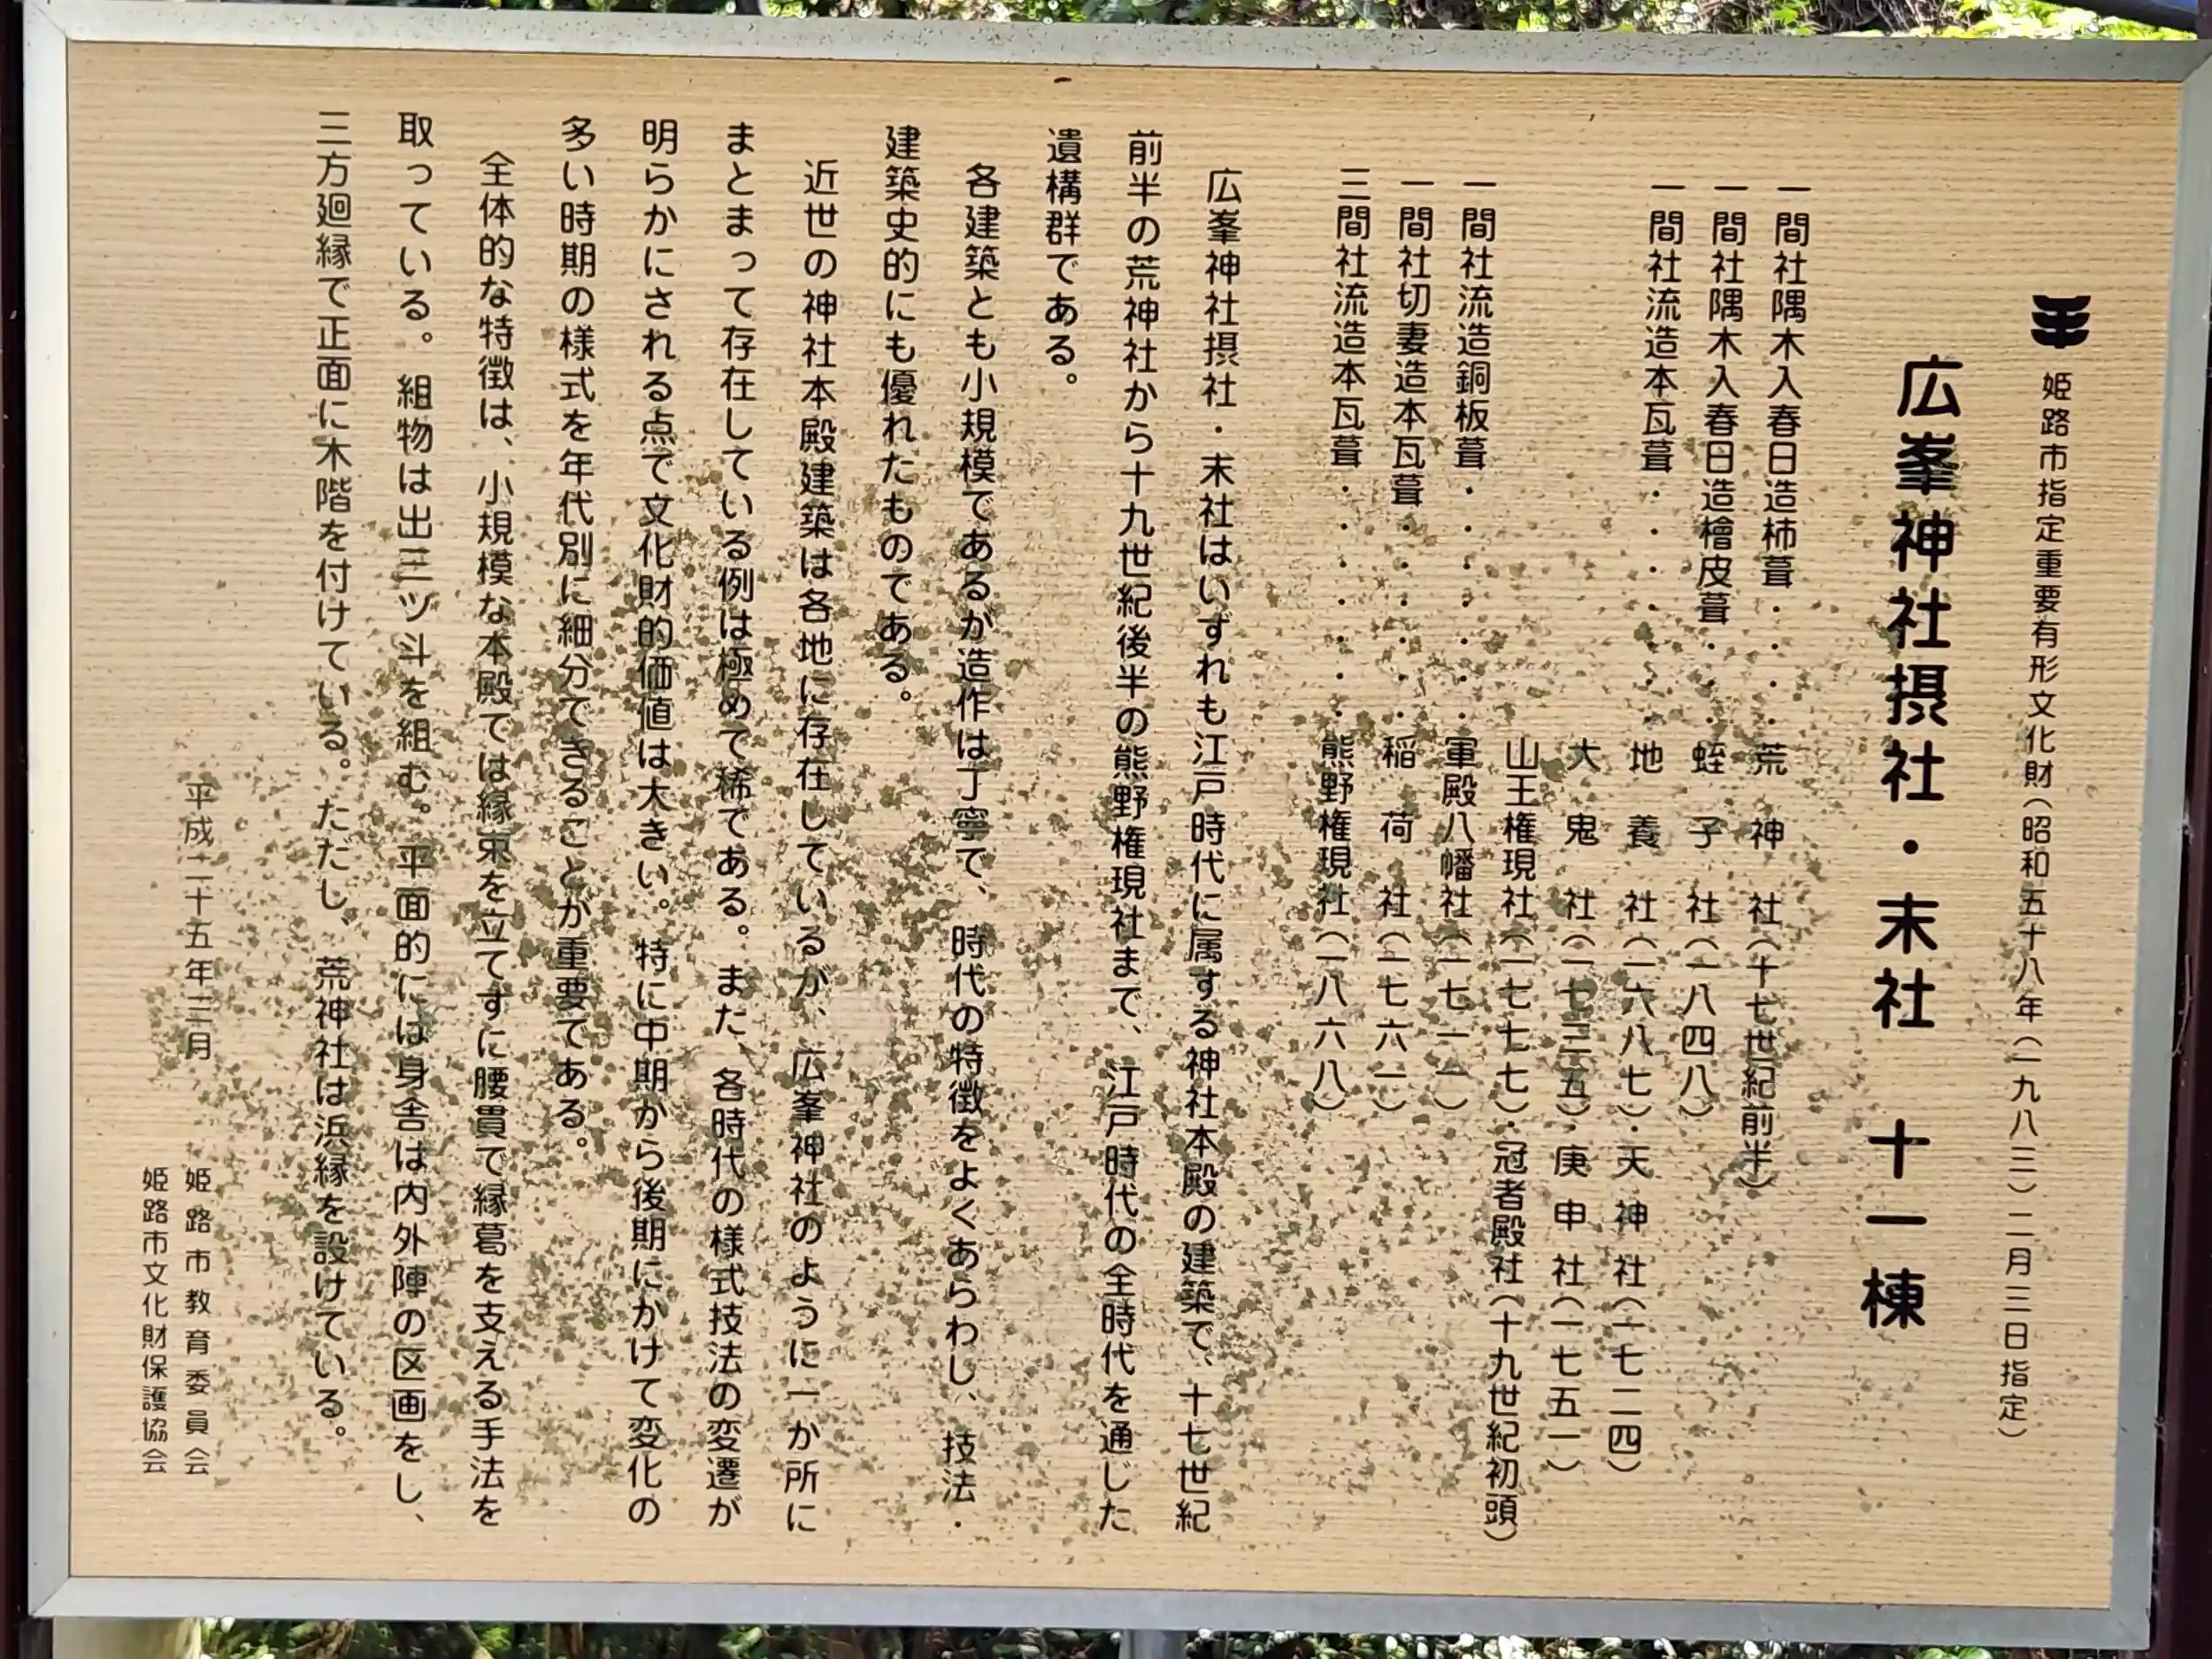 姫路市指定重要有形文化財（昭和五十八年（一九八三）二月三日指定）
広峯神社摂社・末社　十一棟
一間社隅木入春日造杮葺・・・・荒神社（十七世紀前半）
一間社隅木入春日造檜皮葺・・・蛭子社（一八四八）
一間社流造本瓦葺・・・・・・・地養社（一六八七）・天神社（一七二四）
大鬼社（一七三五）・庚申社（一七五一）
山王権現社（一七七七）・冠者殿社（十九世紀初頭）
一間社流造銅板葺・・・・・・・軍殿八幡社（一七一一）
一間社切妻造本瓦葺・・・・・・稲荷社（一七六一）
三間社流造本瓦葺・・・・・・・熊野権現社（一八六八）
広峯神社摂社・末社はいずれも江戸時代に属する神社本殿の建築で、十七世紀
前半の荒神社から十九世紀後半の熊野権現社まで、江戸時代の全時代を通じた
遺構群である。
各建築とも小規模であるが造作は丁寧で、時代の特徴をよくあらわし、技法・
建築史的にも優れたものである。
近世の神社本殿建築は各地に存在しているが、広峯神社のように一か所に
まとまって存在している例は極めて稀である。また、各時代の様式技法の変遷が
明らかにされる点で文化財的価値は大きい。特に中期から後期にかけて変化の
多い時期の様式を年代別に細分できることが重要である。
全体的な特徴は、小規模な本殿では縁束を立てずに腰貫で縁葛を支える手法を
取っている。組物は出三ツ斗を組む。平面的には身舎は内外陣の区画をし、
三方廻縁で正面に木階を付けている。ただし、荒神社は浜縁を設けている。
平成二十五年三月
姫路市教育委員会
姫路市文化財保護協会